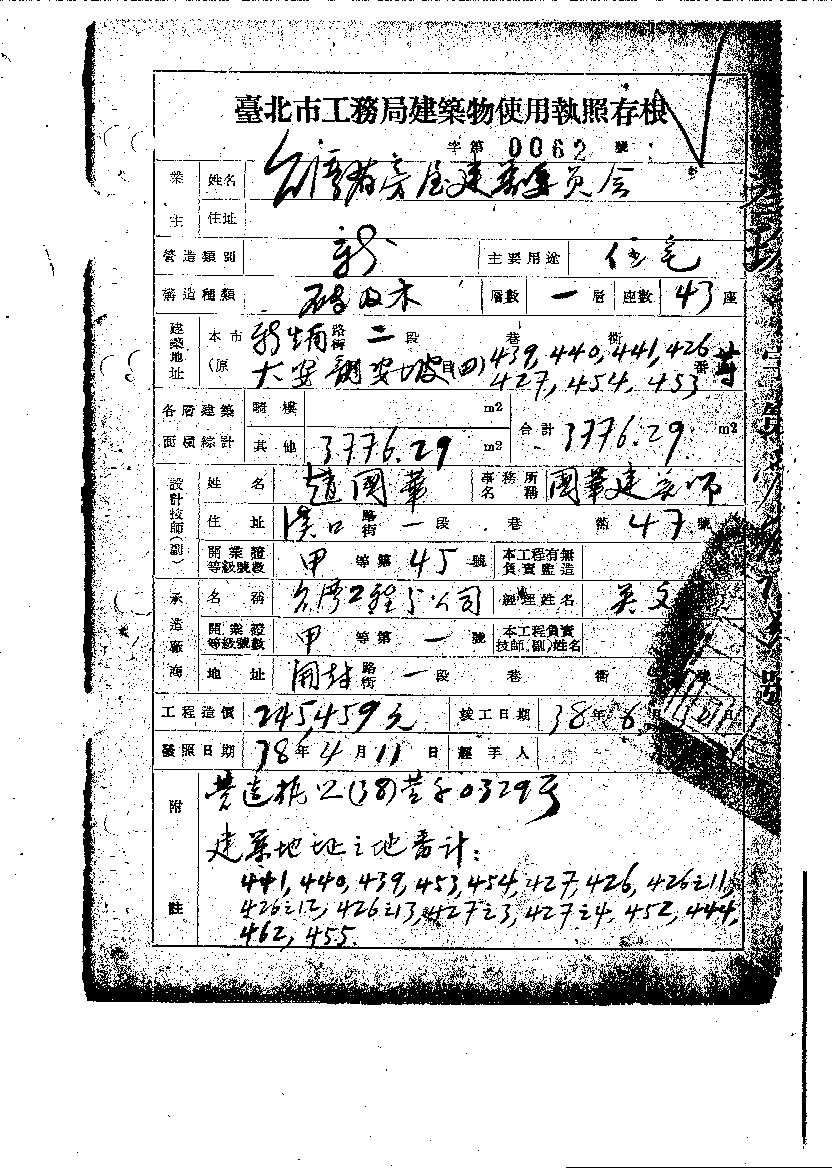 臺北市工務局建築物使用執照存根
字第 0062 號
業主 姓名 台灣省房屋建築委員会
住址
營造類別 新 主要用途 住宅
構造種類 磚及木 層數 一 層 座數 43 座
建築地址 本市 新生南 路街 二 段 巷 衖
(原 大安 龍安坡 目(四) 439, 440, 441, 426 番
427, 454, 453
各層建築面積綜計 騎樓 m2 合計 3776.29 m2
其他 3776.29 m2
設計技師(副) 姓名 趙國華 事務所名稱 國華建築師
住址 漢口 路街 一 段 巷 衖 47 號
開業證等級號數 甲 等第 45 號 本工程有無負責監造
承造廠商 名稱 台灣工程公司 經理姓名
開業證等級號數 甲 等第 一 號 本工程負責技師(副)姓名
地址 開封 路街 一 段 巷 衖 號
工程造價 245,459元 竣工日期 38 年 6
發照日期 38 年 4 月 11 日 經手人
附註 營造執照(38)營字0329号
建築地址之地番計:
441, 440, 439, 453, 454, 427, 426, 426之11,
426之12, 426之13, 427之3, 427之4, 452, 444,
462, 455.